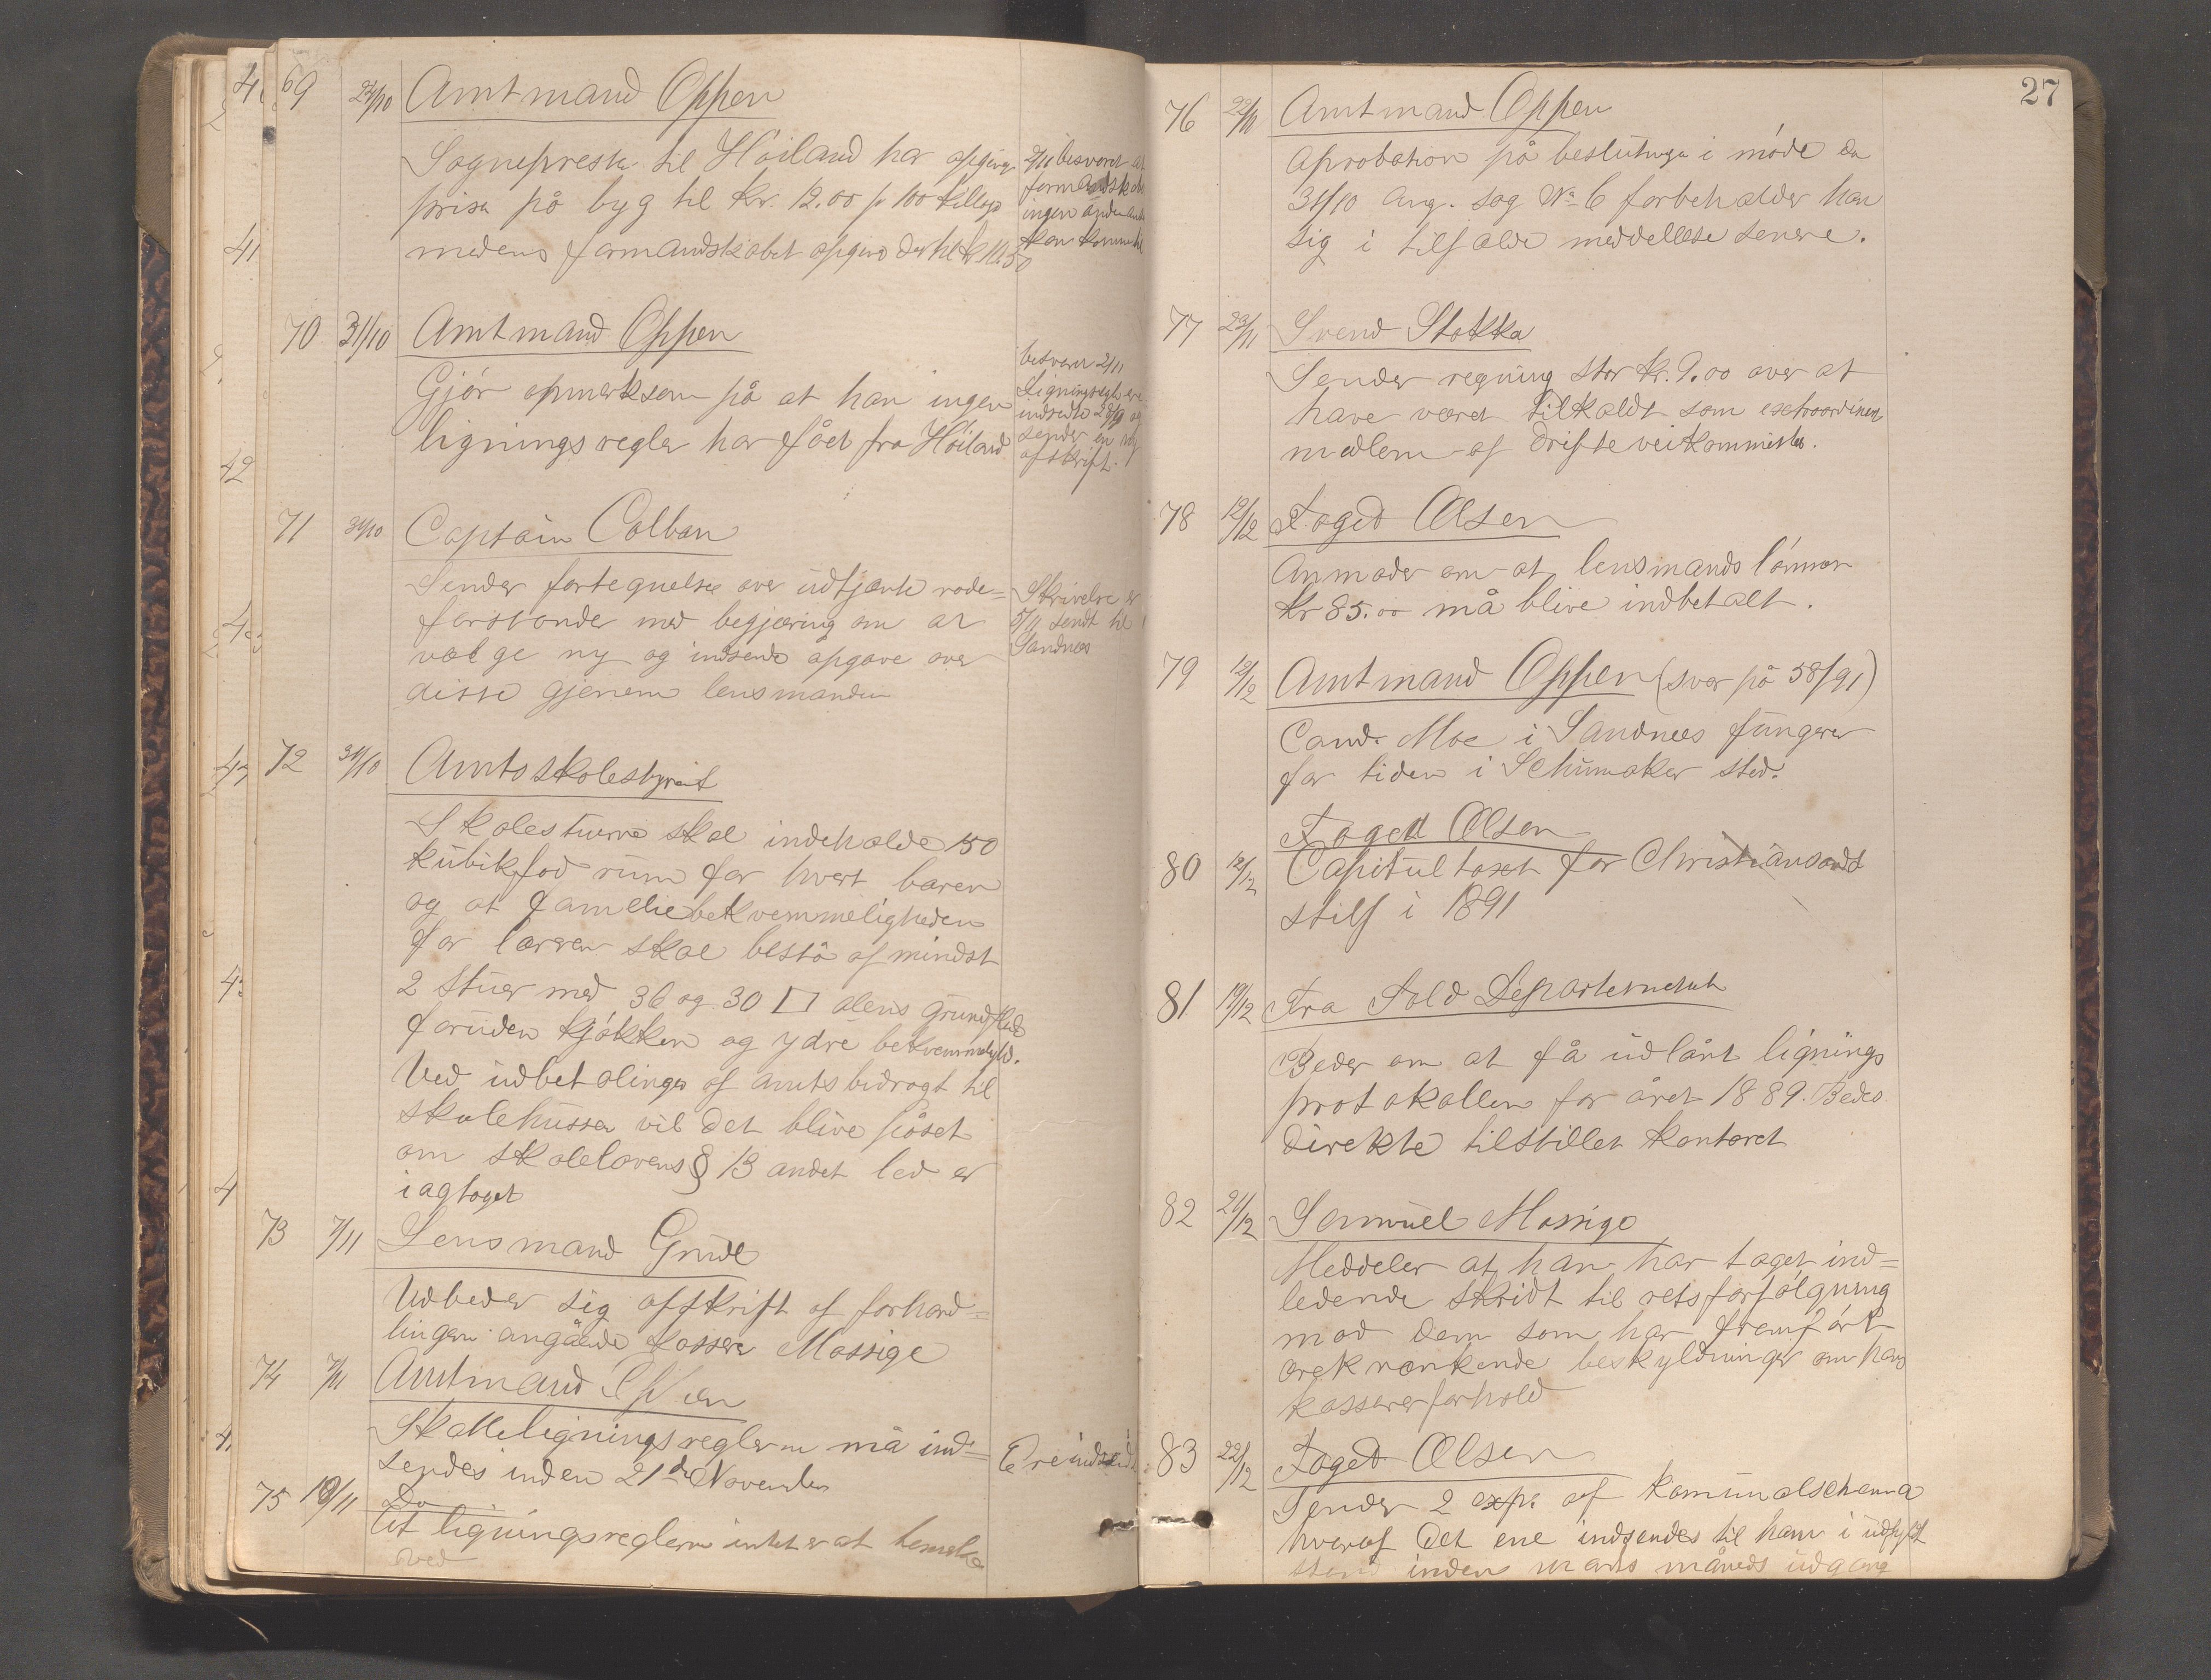 69 27/10 Amtmand Oppen
Sognepresten til Höiland har opgivet
prisen på byg til Kr. 12.00 pr 100 Killogr
medens formandskabet opgiver der til Kr 11.50
2/11 besvaret at
formandskabet
ingen anden
kan komme til
70 31/10 Amtmand Oppen
Gjör opmerksom på at han ingen
ligningsregler har fået fra Höiland
besvaret 2/11
Ligningsregler er
indsendte 28/9 og
sender en ny
afskrift.
71 31/10 Captain Colban
Sender fortegnelse over udtjente rode=
forstander med begjæring om at
vælge ny og indsende opgave over
disse gjenem lensmanden
Skrivelse er
5/11 sendt til
Sandnes
72 31/10 Amtsskolestyret
Skolestuerne skal indeholde 150
Kubikfod rum for hvert baren
og at familiebekvemmeligheden
for læreren skal bestå af mindst
2 stuer med 36 og 30 □ alens grundflade
foruden kjökken og ydre bekvemmeligh.
Ved udbetalingen af amtsbidragt til
skolehusser vil det blive påset
om skolelovens § 13 andet led er
iagtaget
73 7/11 Lensmand Grude
Udbeder sig afskrift af forhand=
lingern angående kasserer Massige
74 7/11 Amtmand Oppen
Skatteligningsreglerne må ind=
sendes inden 21de November
Ere indsendt
75 10/11 Do
At ligningsreglerne intet er at bemerke
ved
27
76 22/11 Amtmand Oppen
Aprobation på beslutninger i möde den
31/10 ang. sag No 6 forbeholder han
sig i tilfælde meddellese senere.
77 23/11 Svend Stokka
Sender regning stor Kr. 9.00 over at
have været tilkaldt som extraordinær
medlem af driftevei kommisten.
78 12/12 Foged Olsen
Anmoder om at lensmands lönnen
Kr 85.00 må blive indbetalt.
79 12/12 Amtmand Oppen (svar på 58/91)
Cand. Moe i Sandnes fungerer
for tiden i Schumaker sted.
Foged Olsen
80 12/12 Capitultaxt for Christiansands
stift i 1891
81 19/12 Fra Told Departementet
Beder om at få udlånt lignings
protokollen for året 1889. Bedes
direkte tilstillet kontoret
82 21/12 Samuel Massige
Meddeler at han har taget ind=
ledende skridt til retsforfölgning
mod dem som har fremfört
ærekrænkende beskyldninger om hans
kassererforhold
83 22/12 Foged Olsen
Sender 2 exp. af Komunalschema
hvoraf det ene indsendes til ham i udfyldt
stand inden marts måneds udgang